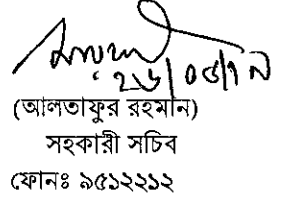 ২৬/০৫/১৭
(আলতাফুর রহমান)
সহকারী সচিব
ফোনঃ ৯৫১২২১২